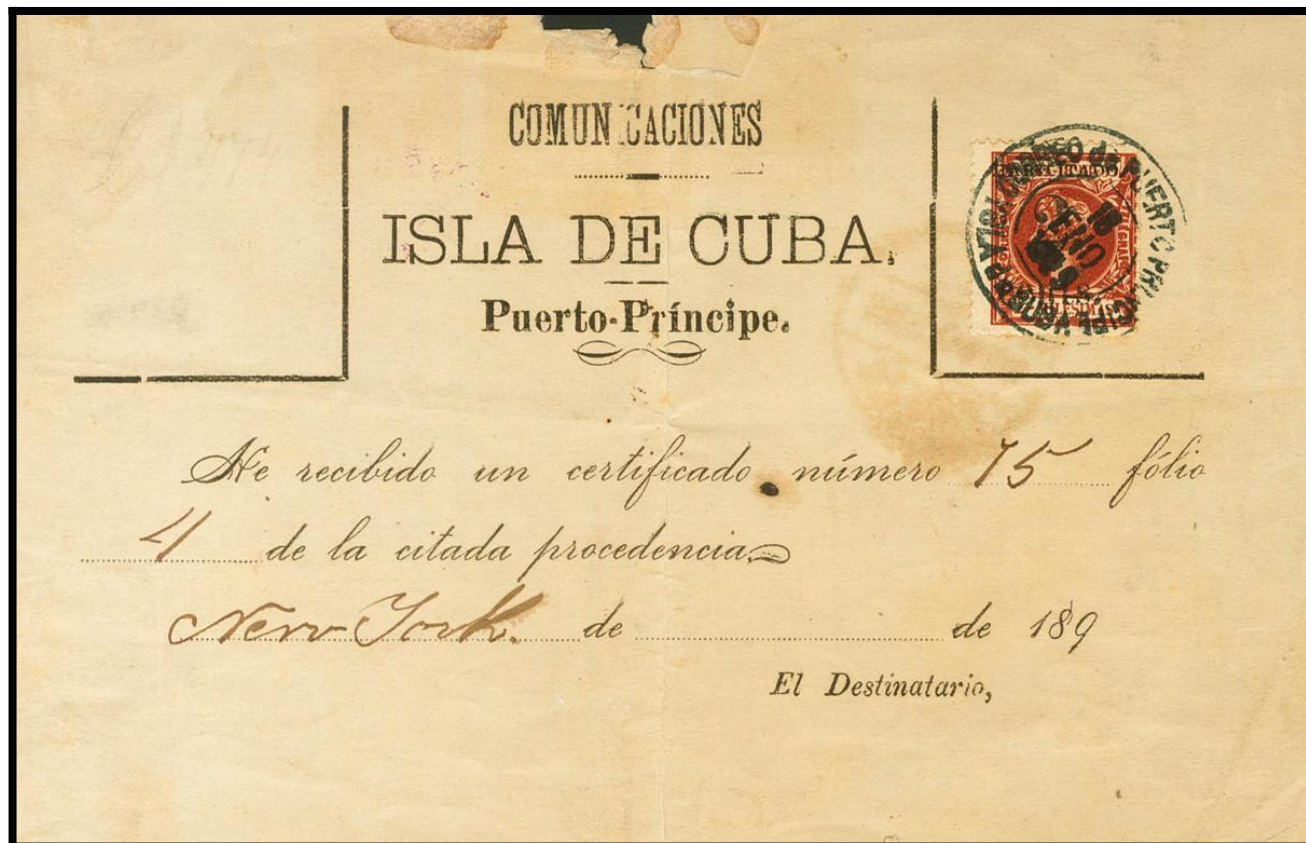 COMUNICACIONES
ISLA DE CUBA.
Puerto-Príncipe.
CORREO de PUERTO PRINCIPE
ENO
He recibido un certificado número 75 fólio
4 de la citada procedencia
New York. de de 189
El Destinatario,